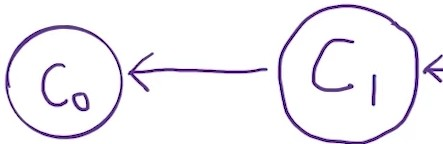 C₀ C₁